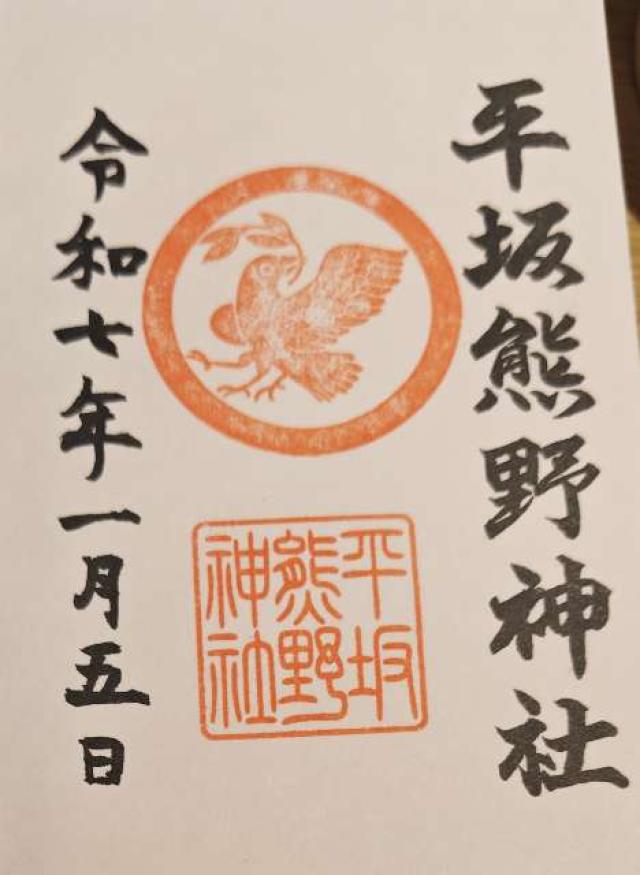 平坂熊野神社
平坂
熊野
神社
令和七年一月五日